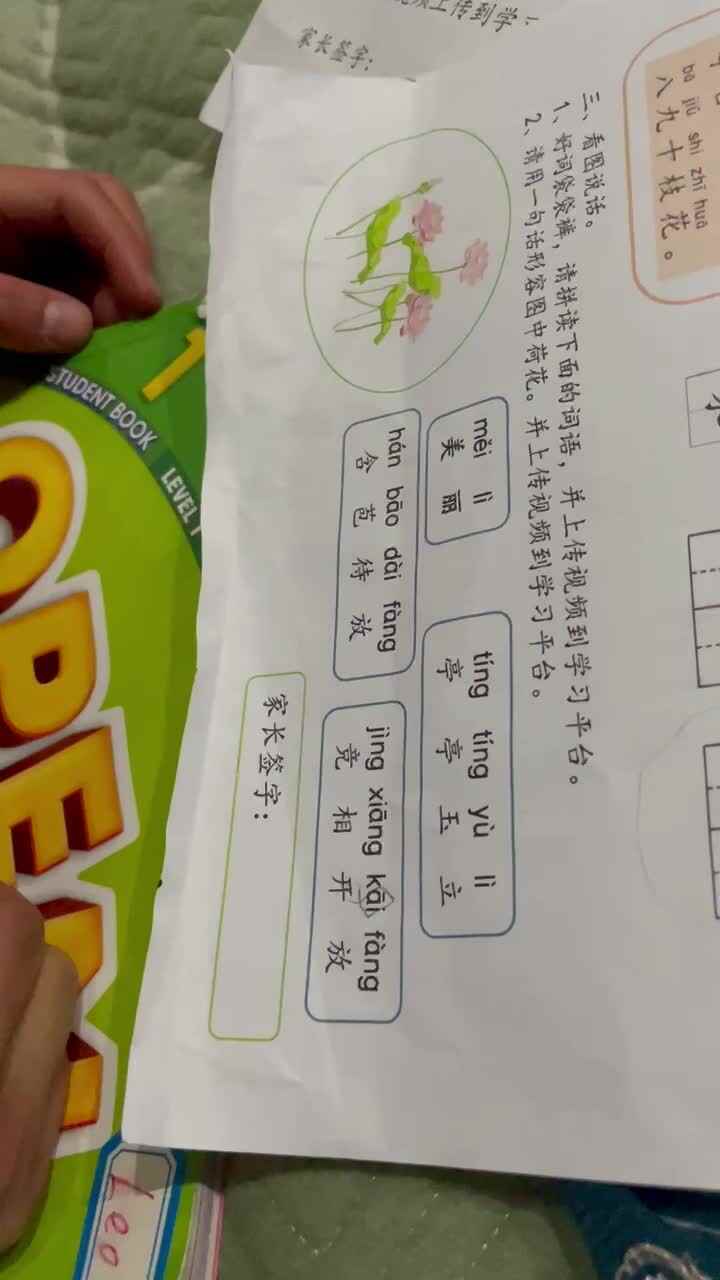 上传到学
家长签字：
bā jiǔ shí zhī huā
八九十枝花。
三、看图说话。
1、好词袋袋裤，请拼读下面的词语，并上传视频到学习平台。
2、请用一句话形容图中荷花。并上传视频到学习平台。
měi lì
美丽
tíng tíng yù lì
亭亭玉立
hán bāo dài fàng
含苞待放
jìng xiāng kāi fàng
竞相开放
家长签字：
1
STUDENT BOOK
LEVEL 1
OPEN
Leo